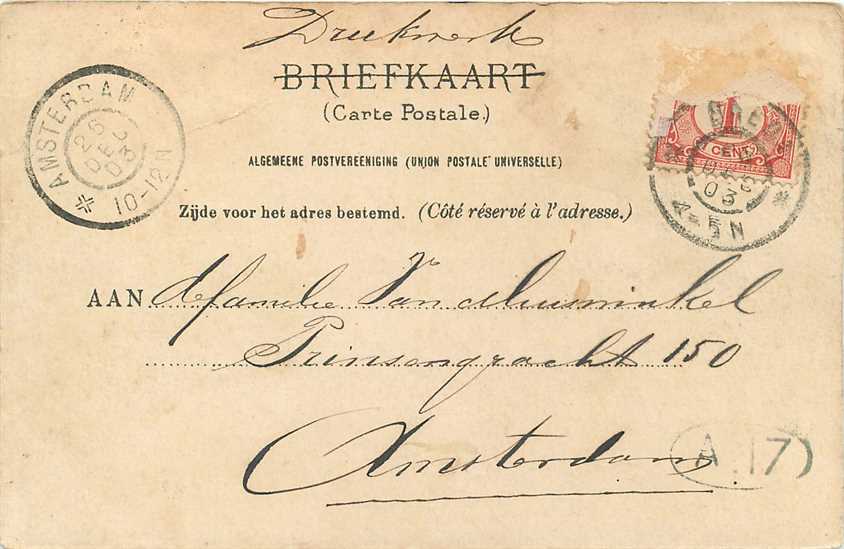 Drukwerk
BRIEFKAART
(Carte Postale.)
ALGEMEENE POSTVEREENIGING (UNION POSTALE UNIVERSELLE)
Zijde voor het adres bestemd. (Côté réservé à l'adresse.)
AMSTERDAM
26
DEC
03
10-12N
1
1 CENT
03
4-5N
AAN de familie Van
Prinsengracht 150
Amsterdam
A 17